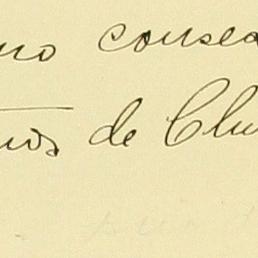 no consea
nos de Chu